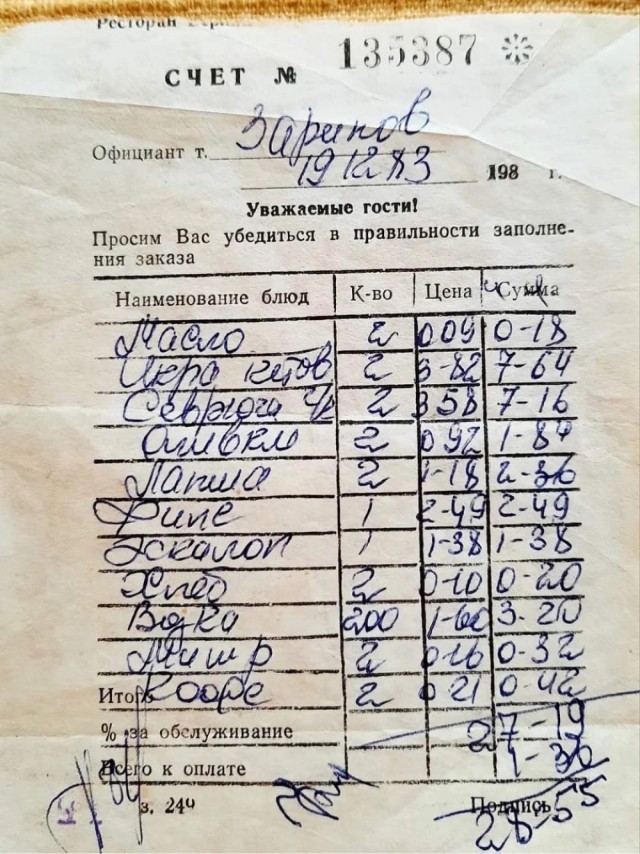 Ресторан
СЧЕТ № 135387
Официант т. Зарипов
19 12 83 198 г.
Уважаемые гости!
Просим Вас убедиться в правильности заполне-
ния заказа
Наименование блюд К-во Цена Сумма
Масло 2 0 09 0-18
Икра кетов 2 3-82 7-64
Севрюга 2 3 58 7-16
Оливки 2 0 92 1-84
Лапша 2 1-18 2-36
Филе 1 2-49 2-49
Эскалоп 1 1-38 1-38
Хлеб 2 0-10 0-20
Водка 200 1-60 3-20
2 0-16 0-32
Итого Кофе 2 0 21 0-42
% за обслуживание 27-19
Всего к оплате 1-36
з. 244 Подпись
28-55